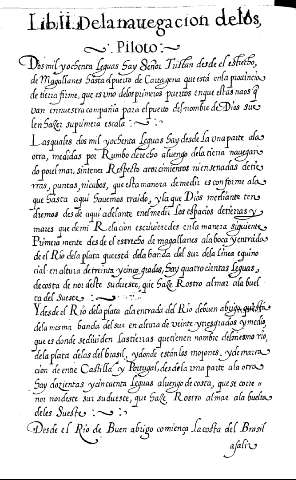 Lib. ii. De la navegacion de los,
Piloto
Dos mil y ochenta leguas hay Señor Tristan desde el estrecho,
de Magallanes hasta el puerto de Cartagena que está en la provincia
de tierra firme, que es uno de los primeros puertos en que estas naos q
van en nuestra compañia para el puerto del nombre de Dios sue
len hazer su primera escala
Las quales dos mil y ochenta leguas hay desde la una parte ala
otra, medidas por Rumbo derecho al luengo de la tierra navegan
do por el mar, sin tener Respecto a recocimientos ni ensenadas de tie
rras, puntas, ni cabos, que esta manera de medir es conforme ala
que hasta aqui havemos traido, y la que Dios mediante ten
dremos de de aqui adelante en el medir los espacios de tierras y
mares que de mi Relacion escrivieredes en la manera siguiente
Primera mente des de el estrecho de magallanes ala boca y entrada
de el Rio dela plata que está dela banda del sur dela linea equino
cial en altura de treinta y cinco grados, hay quatrocientas leguas,
de costa de nordeste sudueste, que haze Rostro al mar ala buel
ta del Sueste
Y desde el Rio dela plata ala entrada del Rio de buen abrigo que está
dela mesma banda del sur en altura de veinte y tres grados y medio,
que es donde se dividen las tierras que tienen nombre del mesmo rio,
de la plata de las del brasil, y donde están los mojones, y demarca
cion de entre Castilla, y Portugal, desde la una parte ala otra
hay dozientas y cincuenta leguas al luengo de costa, que se corre
nor nordeste sur sudueste, que haze Rostro al mar ala buelta
del es Sueste
Desde el Rio de Buen abrigo comiença la costa del Brasil
asalir